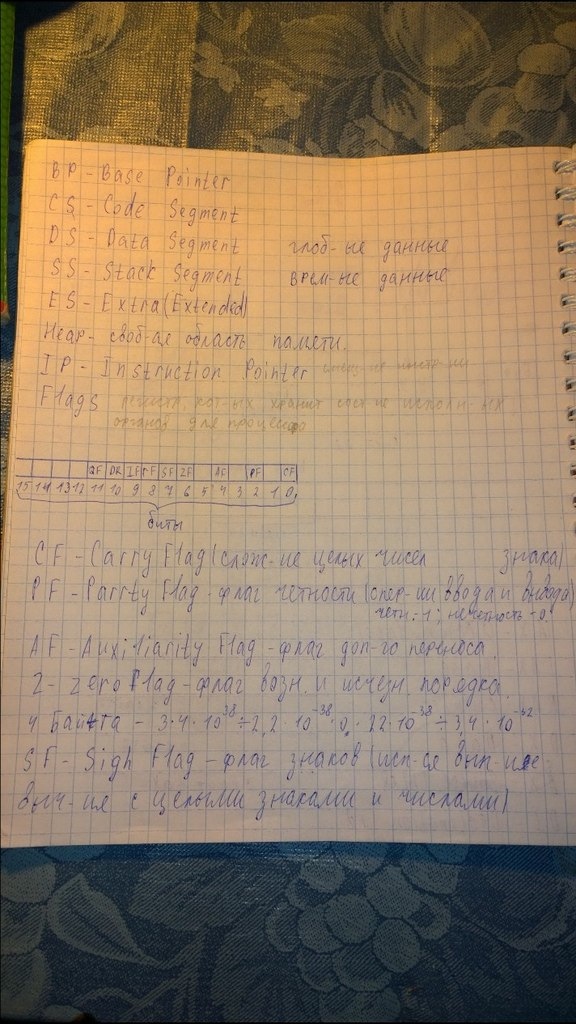 BP - Base Pointer
CS - Code Segment
DS - Data Segment глоб-ые данные
SS - Stack Segment врем-ые данные
ES - Extra (Extended)
Heap - своб-ая область памяти.
IP - Instruction Pointer
Flags регистр, кот-ых хранит сост-ие исполн-ых
органов для процессора
OF DR IF TF SF ZF AF PF CF
15 14 13 12 11 10 9 8 7 6 5 4 3 2 1 0
биты
CF - Carry Flag (слож-ие целых чисел знака)
PF - Parity Flag - флаг четности (опер-ии ввода и вывода)
четн. - 1; нечетность - 0
AF - Auxiliarity Flag - флаг доп-го переноса.
Z - zero Flag - флаг возн. и исчезн. порядка.
4 Байта - 3.4 · 10³⁸ ÷ 2,2 · 10⁻³⁸ 0. 22 · 10⁻³⁸ ÷ 3,4 · 10⁻³²
SF - Sigh Flag - флаг знаков (исп-ся
выч-ие с целыми знаками и числами)